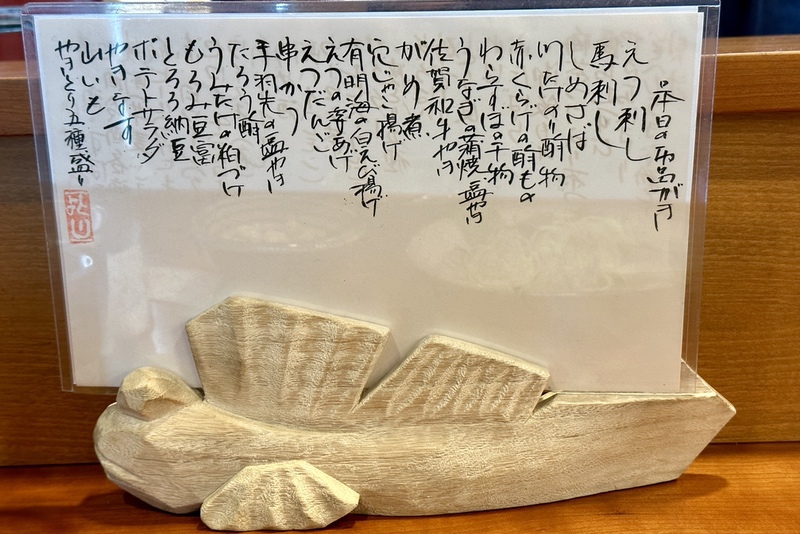 本日のお品がき
えつ刺し
馬刺し
しめさば
川たけのり酢物
赤くらげの酢もの
わらすぼの干物
うなぎの蒲焼 塩やき
佐賀和牛やき
がめ煮
穴じゃこ揚げ
有明海の白えび揚げ
えつの
えつだんご
串かつ
手羽先の塩やき
うみたけの粕づけ
もろみ豆富
とろろ納豆
ポテトサラダ
やきなす
山いも
やきとり五種盛り